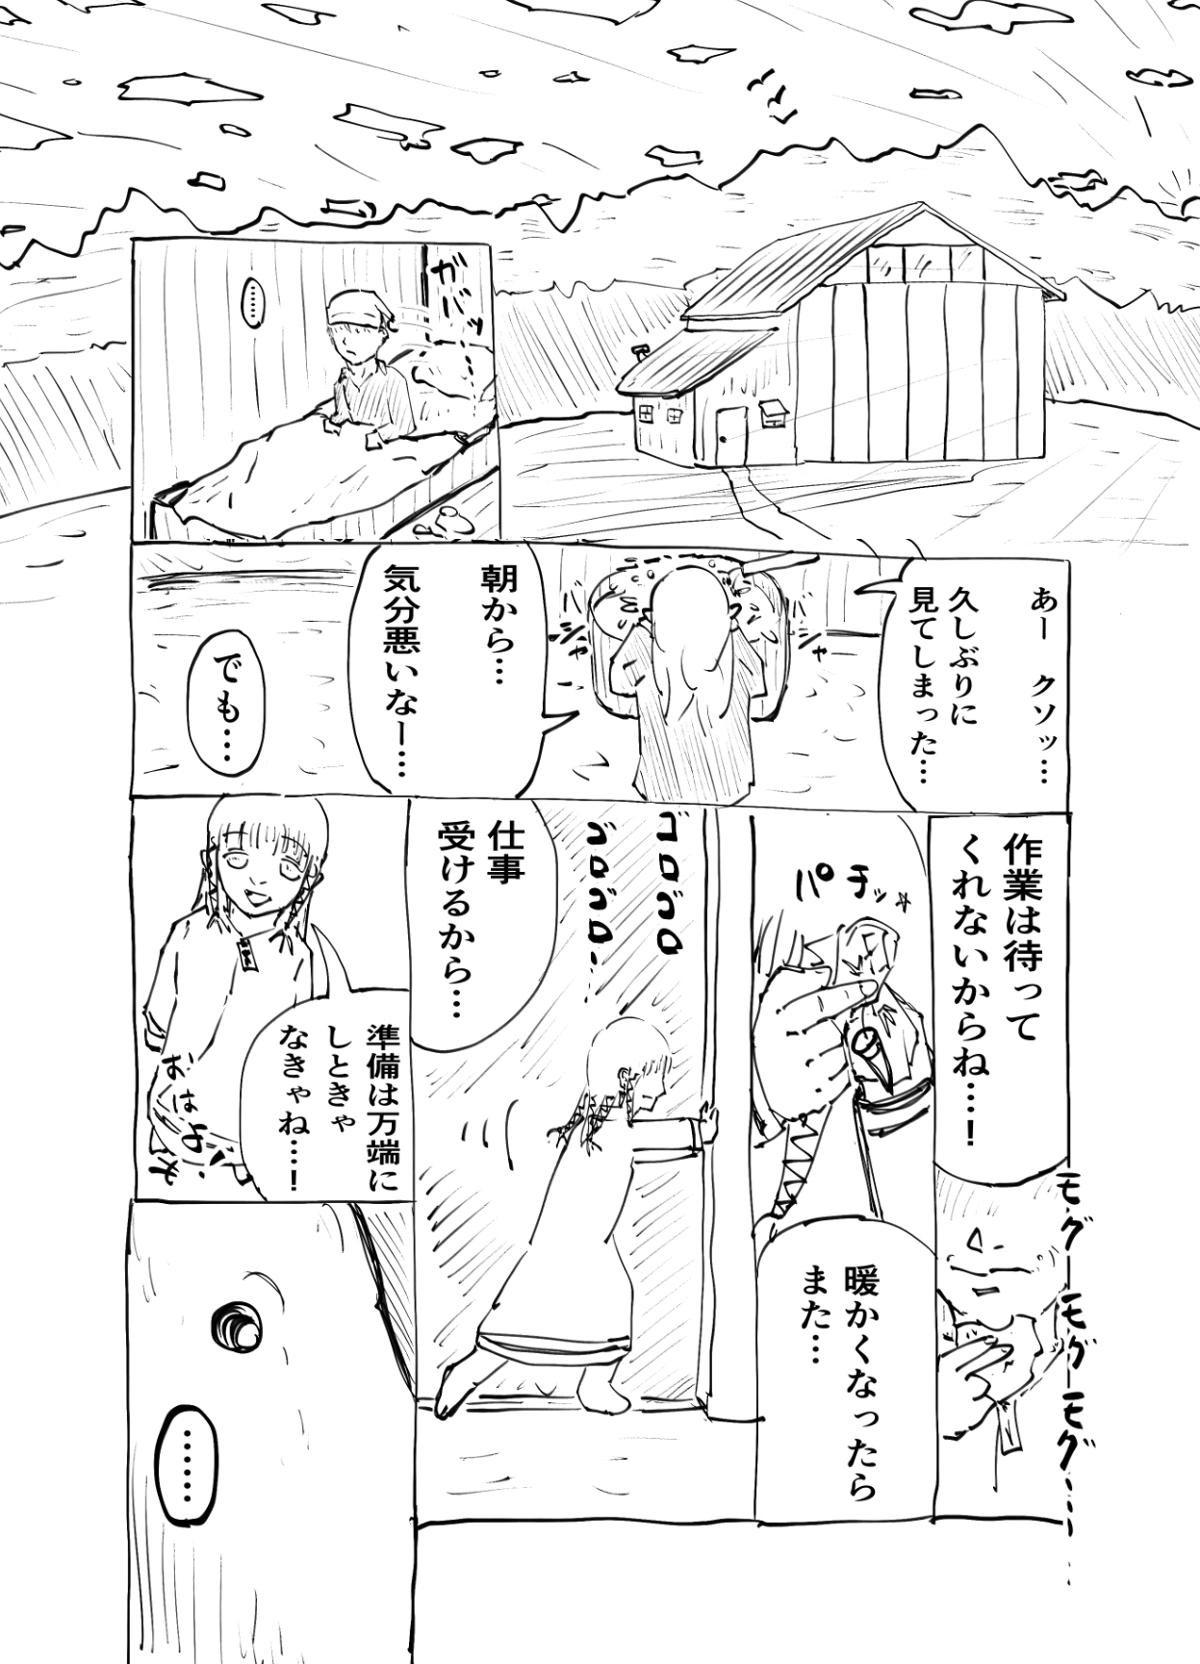 ガバッ
……
あー　クソッ…
久しぶりに
見てしまった…
バシャ
バシャ
朝から…
気分悪いなー…
でも…
作業は待って
くれないからね…！
モグーモグーモグ……
パチッ☆
暖かくなったら
また…
ゴロゴロ
ゴロゴロ…
仕事
受けるから…
準備は万端に
しときゃ
なきゃね…！
おはよ
……